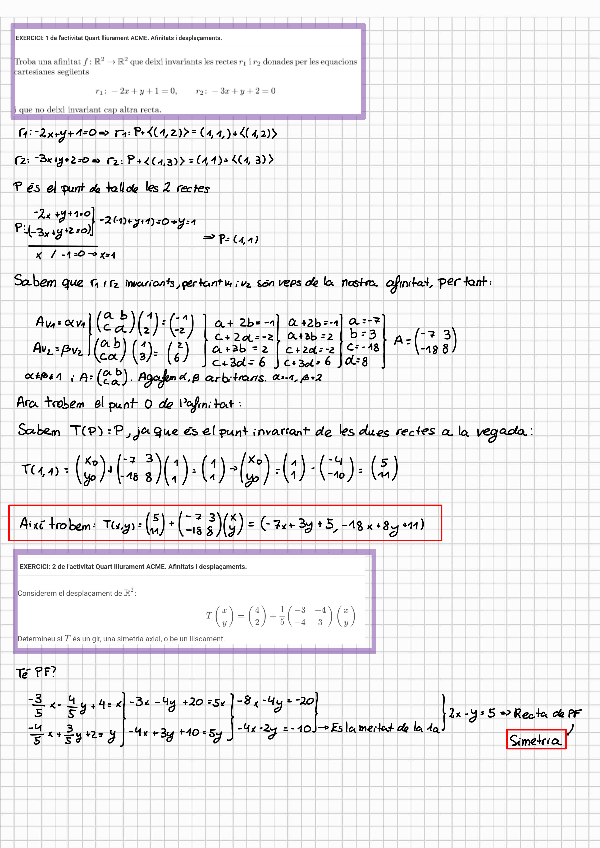 EXERCICI: 1 de l'activitat Quart lliurament ACME. Afinitats i desplaçaments.
Troba una afinitat f : ℝ² → ℝ² que deixi invariants les rectes r₁ i r₂ donades per les equacions
cartesianes següents
r₁ : −2x + y + 1 = 0,   r₂ : −3x + y + 2 = 0
i que no deixi invariant cap altra recta.
r₁: -2x+y+1=0 ⇒ r₁: P+<(1,2)> = (1,1,)+<(1,2)>
r₂: -3x+y+2=0 ⇒ r₂: P+<(1,3)> = (1,1)+<(1,3)>
P és el punt de tall de les 2 rectes
-2x+y+1=0] -2(1)+y+1)=0→y=1
P:(-3x+y+2=0)] ⇒ P=(1,1)
x / -1=0→x=1
Sabem que r₁ i r₂ invariants, per tant v₁ i v₂ són veps de la nostra afinitat, per tant:
Av₁=αv₁ | (a b / c d)(1 / 2) = (-1 / -2) ] a+2b=-1 ] a+2b=-1 ] a=-7
c+2d=-2 | a+3b=2 | b=3 A=(-7 3 / -18 8)
Av₂=βv₂ | (a b / c d)(1 / 3) = (2 / 6) ] a+3b=2 | c+2d=-2 | c=-18
c+3d=6 ] c+3d=6 ] d=8
α≠β≠1 i A=(a b / c d). Agafem α, β arbitraris. α=-1, β=2
Ara trobem el punt O de l'afinitat:
Sabem T(P)=P, ja que és el punt invariant de les dues rectes a la vegada:
T(1,1) = (x₀ / y₀)+(-7 3 / -18 8)(1 / 1) = (1 / 1) → (x₀ / y₀) = (1 / 1) - (-4 / -10) = (5 / 11)
Així trobem: T(x,y) = (5 / 11) + (-7 3 / -18 8)(x / y) = (-7x+3y+5, -18x+8y+11)
EXERCICI: 2 de l'activitat Quart lliurament ACME. Afinitats i desplaçaments.
Considerem el desplacament de ℝ²:
T (x / y) = (4 / 2) + 1/5 (−3 −4 / −4 3) (x / y)
Determineu si T és un gir, una simetria axial, o be un lliscament.
Té PF?
-3/5 x - 4/5 y + 4 = x ] -3x-4y+20=5x ] -8x-4y=-20 ] 2x-y=5 ⇒ Recta de PF
-4/5 x + 3/5 y + 2 = y ] -4x+3y+10=5y ] -4x-2y=-10 ] → És la meitat de la 1a
Simetria